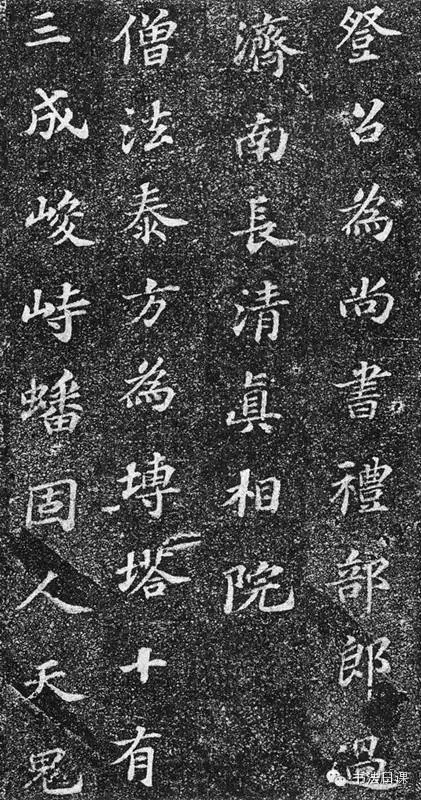 登召為尚書禮部郎過
濟南長清真相院
僧法泰方為塼塔十有
三成峻峙蟠固人天鬼
书法日课